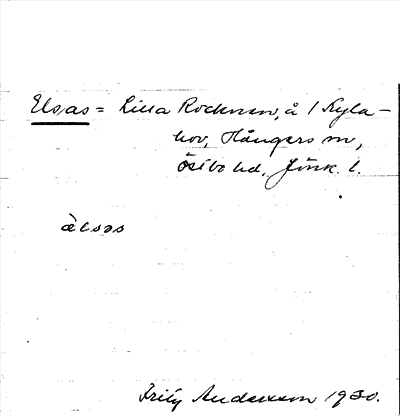 Elsas = Lilla Rocknen, å 1 Kyla-
hov, Hångers sn,
Östbo hd, Jönk. l.
èlsas
Fritz Andersson 1930.